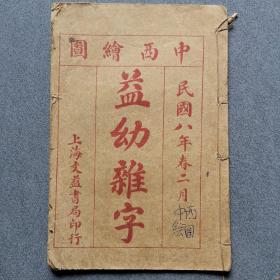 中西繪圖
民國八年春二月
益幼雜字
上海文益書局印行
中西
繪圖